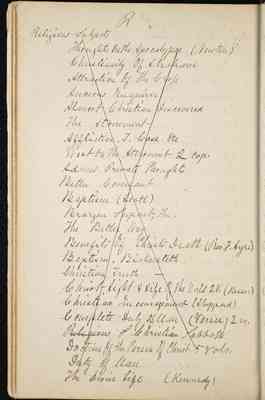 R
Religious Subjects
Thoughts on the Apocalypse (Newton)
Christianity Of
Attraction of the Cross
Anxious Enquirer
Almost Christian Discovered
The Atonement
Affliction, T. Case. Etc
West on the Atonement 2 cop.
Adams Private Thoughts
Better Covenant
Baptism (Scott)
The Better
Benefits of Christs Death (Rev. J. Ayre)
Baptism, Bickersteth
Christian Truth
Christ, Light & Life of the World
Christian Encouragement (Sheppard)
Complete Duty of Man (Venn) 2 v.
Religions of Christian Sabbath
Doctrine of the Person of Christ 5 vols.
Duty of Man
The Divine Life (Kennedy)